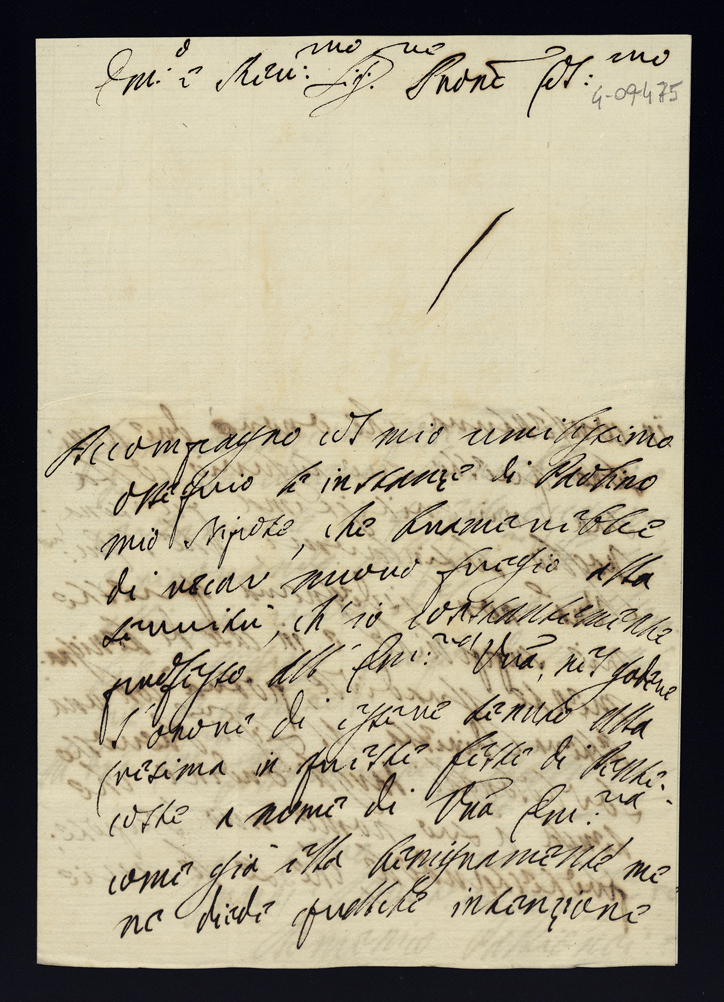 Em:o e Reu:mo Sig:re Pñone Col:mo
4-09475
Accompagno col mio umilissimo
ossequio le instanze di Paolino
mio Nipote, che bramarebbe
di recar nuouo fregio alla
seruitù, ch'io constantemente
professo all' Em:za Vr̃a, nel godere
l'onore di essere tenuto alla
cresima in queste feste di Pente:
coste a nome di Vr̃a Em:za
come già ella benignamente me
ne diede qualche intenzione